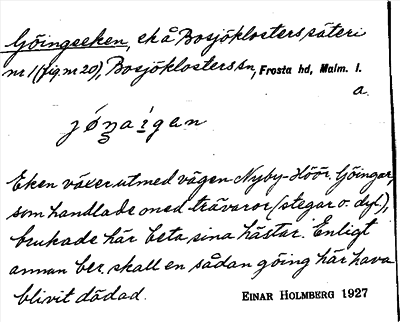 Göingseken, ek å Bosjöklosters säteri
nr 1 (fig. nr 20), Bosjöklosters sn, Frosta hd, Malm. l.
a.
jő́ŋaígan
Eken växer utmed vägen Nyby-Höör. Göingar,
som handlade med trävaror (stegar o. dyl.),
brukade här beta sina hästar. Enligt
annan ber. skall en sådan göing här hava
blivit dödad. EINAR HOLMBERG 1927